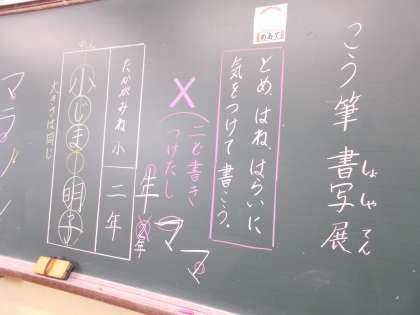 こう筆 書写展
しょしゃてん
めあて
とめ、はね、はらいに
気をつけて書こう。
二ど書き
つけたし
マ
マ
年
2年
たかがみね小 二年
小じま 明子
大きさは同じ